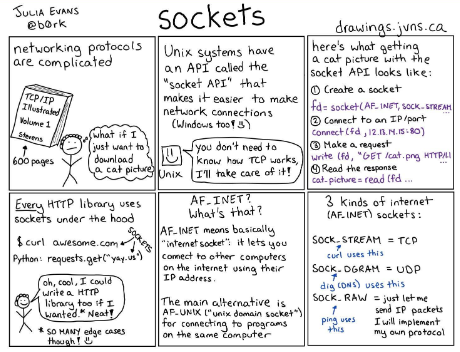 JULIA EVANS
@bork
sockets
drawings.jvns.ca
networking protocols
are complicated
TCP/IP
Illustrated
Volume 1
Stevens
600 pages
what if I
just want to
download
a cat picture
Unix systems have
an API called the
"socket API" that
makes it easier to make
network connections
(Windows too!)
you don't need to
know how TCP works,
I'll take care of it!
Unix
here's what getting
a cat picture with the
socket API looks like:
① Create a socket
fd = socket(AF_INET, SOCK_STREAM
② Connect to an IP/port
connect(fd, 12.13.14.15:80)
③ Make a request
write (fd, "GET /cat.png HTTP/1.1
④ Read the response
cat_picture = read (fd ...
Every HTTP library uses
sockets under the hood
$ curl awesome.com
SOCKETS
Python: requests.get("yay.us")
oh, cool, I could
write a HTTP
library too if I
wanted.* Neat!
* SO MANY edge cases
though!
AF_INET?
What's that?
AF_INET means basically
"internet socket": it lets you
connect to other computers
on the internet using their
IP address.
The main alternative is
AF_UNIX ("unix domain socket")
for connecting to programs
on the same computer
3 kinds of internet
(AF_INET) sockets:
SOCK_STREAM = TCP
curl uses this
SOCK_DGRAM = UDP
dig (DNS) uses this
SOCK_RAW = just let me
send IP packets
ping uses
this
I will implement
my own protocol